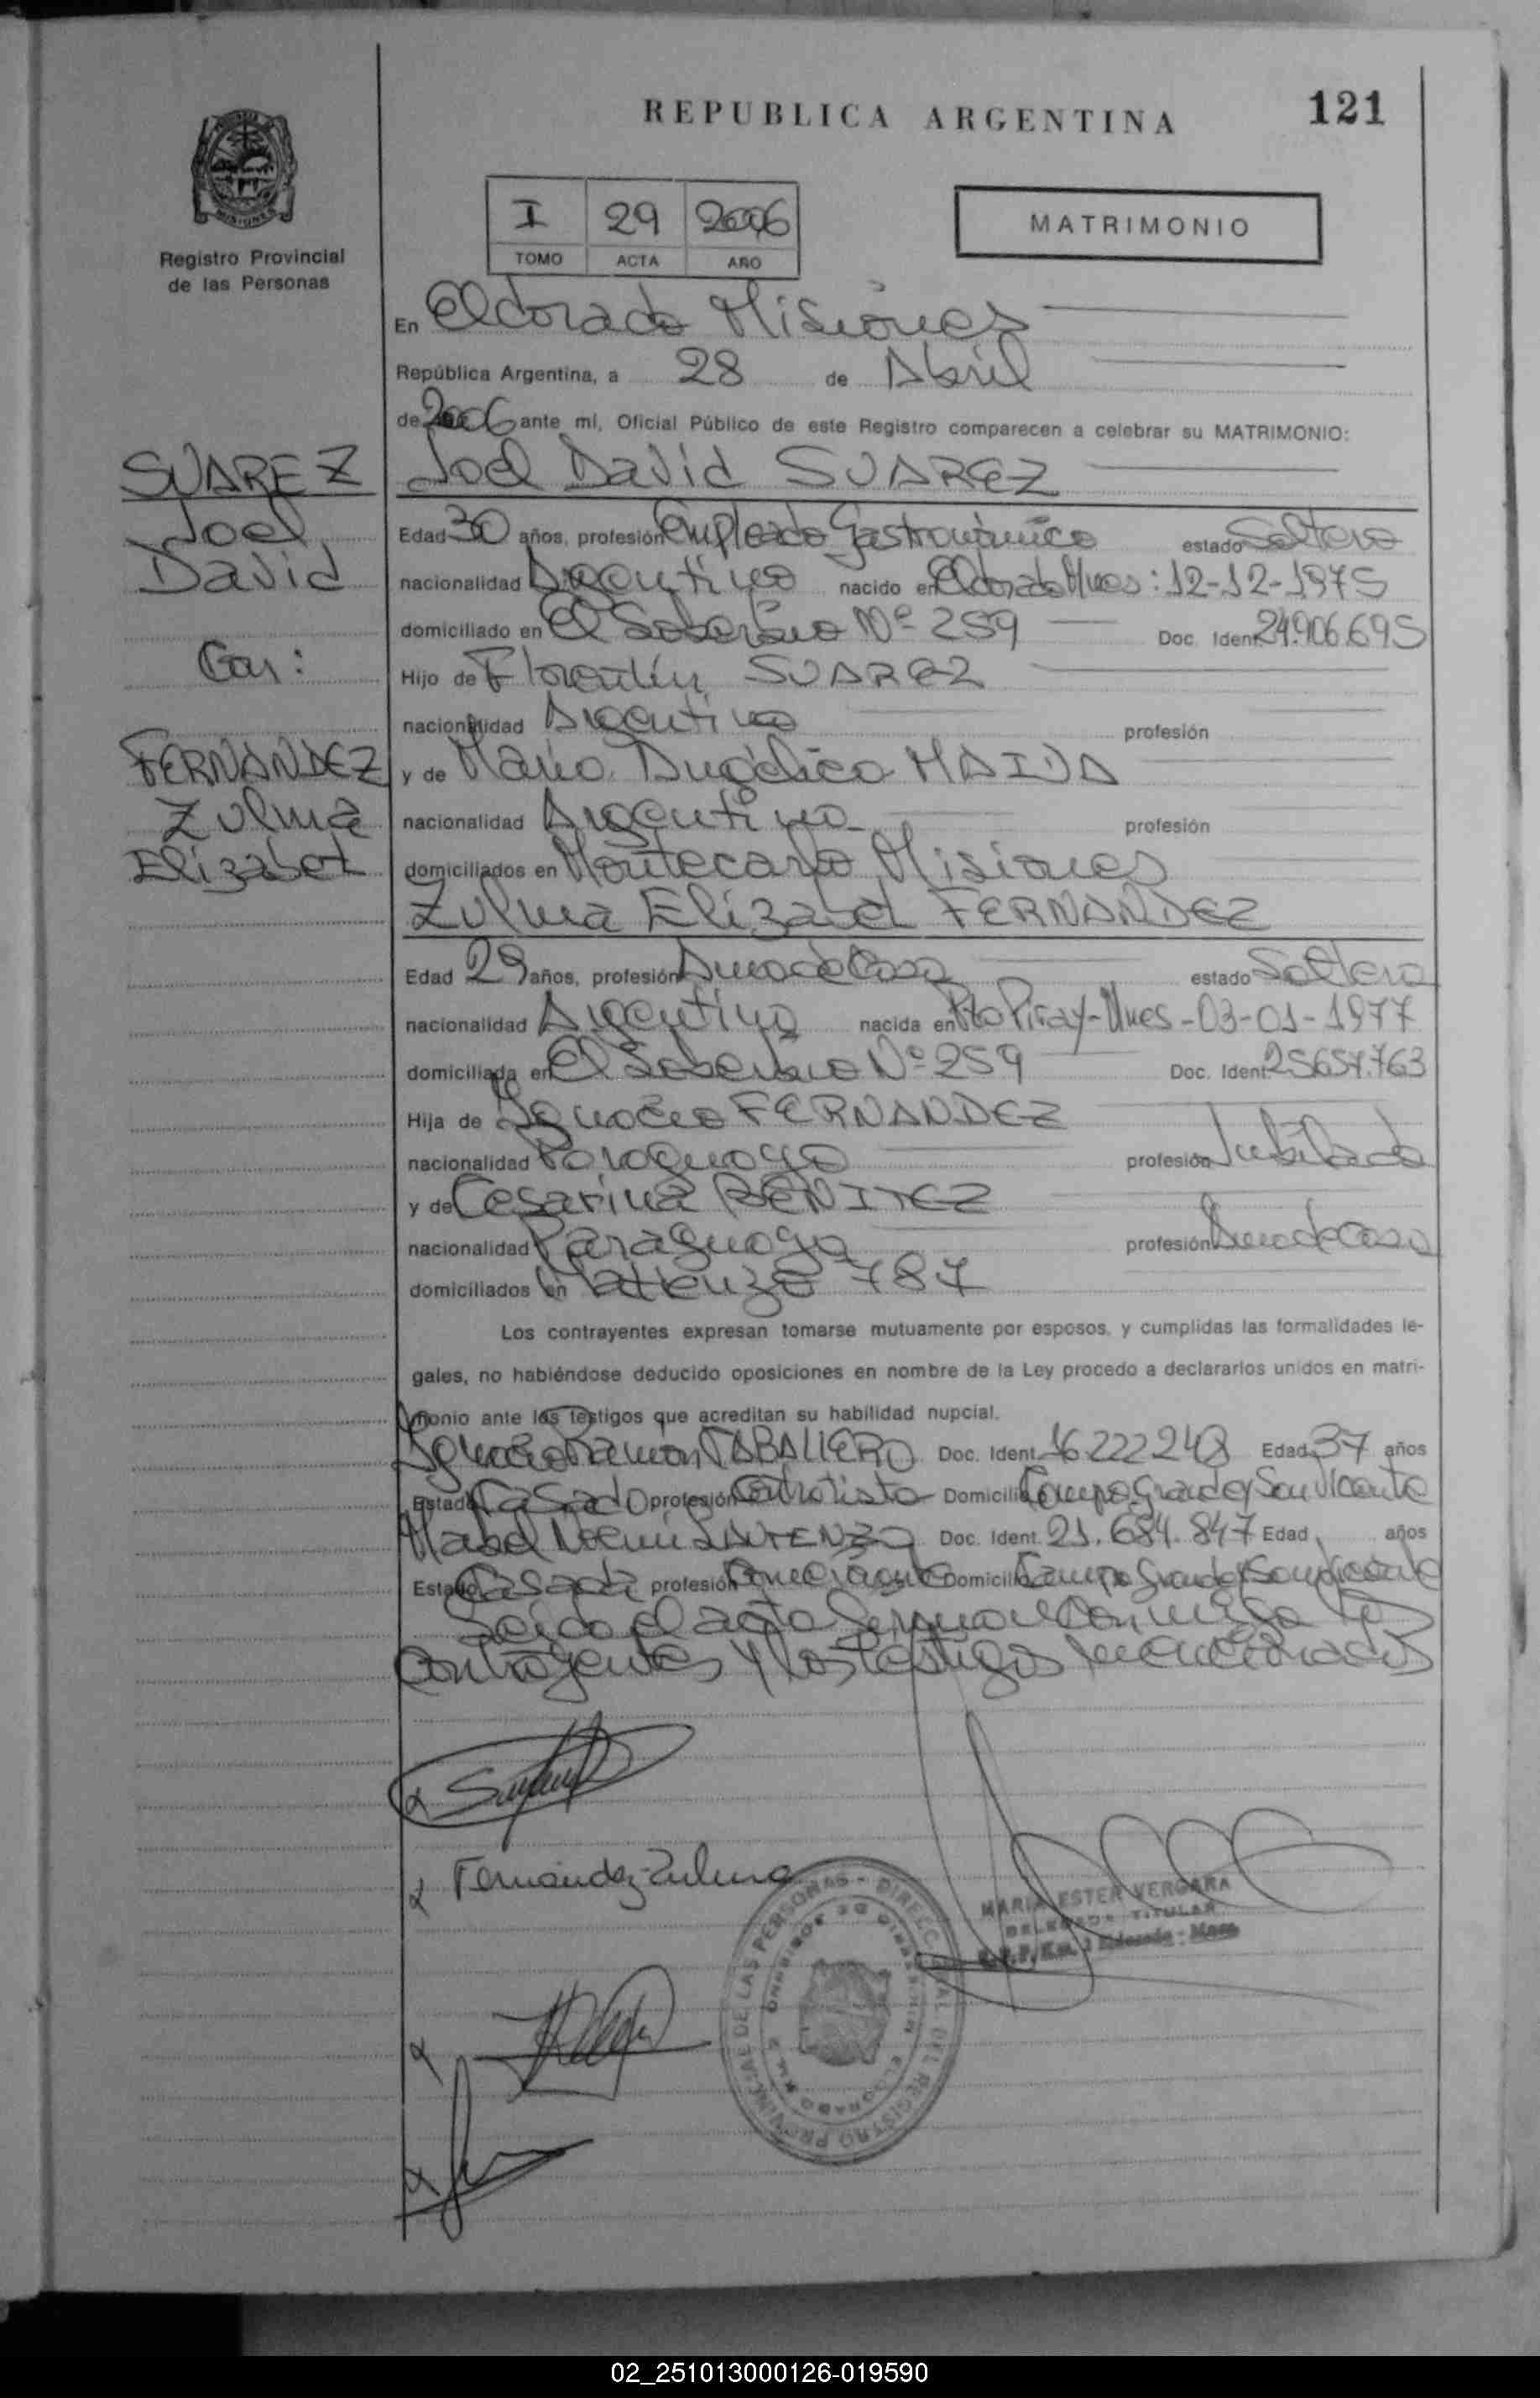 REPUBLICA ARGENTINA
121
MISIONES
Registro Provincial
de las Personas
I 29 2006
TOMO ACTA AÑO
MATRIMONIO
En Eldorado Misiones
República Argentina, a 28 de Abril
de 2006 ante mí, Oficial Público de este Registro comparecen a celebrar su MATRIMONIO:
SUAREZ
Joel
David
Con:
FERNANDEZ
Zulma
Elizabet
Joel David SUAREZ
Edad 30 años, profesión Empleado Gastronómico estado Soltero
nacionalidad Argentino nacido en Eldorado Mnes: 12-12-1975
domiciliado en El Soberbio Nº 259 Doc. Ident. 24.906.695
Hijo de Florentín SUAREZ
nacionalidad Argentino profesión
y de María Angélica MAIDA
nacionalidad Argentina profesión
domiciliados en Montecarlo Misiones
Zulma Elizabet FERNANDEZ
Edad 29 años, profesión Ama de Casa estado Soltera
nacionalidad Argentina nacida en Pto Piray-Mnes-03-01-1977
domiciliada en El Soberbio Nº 259 Doc. Ident. 25657.763
Hija de Ignacio FERNANDEZ
nacionalidad Paraguayo profesión Jubilado
y de Cesarina BENITEZ
nacionalidad Paraguaya profesión Ama de Casa
domiciliados en Matienzo 787
Los contrayentes expresan tomarse mutuamente por esposos, y cumplidas las formalidades le-
gales, no habiéndose deducido oposiciones en nombre de la Ley procedo a declararlos unidos en matri-
monio ante los testigos que acreditan su habilidad nupcial.
Ignacio Ramon CABALLERO Doc. Ident. 16222248 Edad 37 años
Estado Casado profesión Contratista Domicilio Campo Grande San Vicente
Mabel Noemi Doc. Ident. 21.684.847 Edad años
Estado Casada profesión Comerciante Domicilio Campo Grande San Vicente
Leido el acta firman conmigo los
Contrayentes y los testigos mencionados
Fernandez Zulma
MARIA ESTER VERGARA
DELEGADA TITULAR
R.P.P. Km. 2 Eldorado - Mnes
DIRECC. GRAL. DEL REGISTRO PROVINCIAL DE LAS PERSONAS
ELDORADO KM. 2
02_251013000126-019590